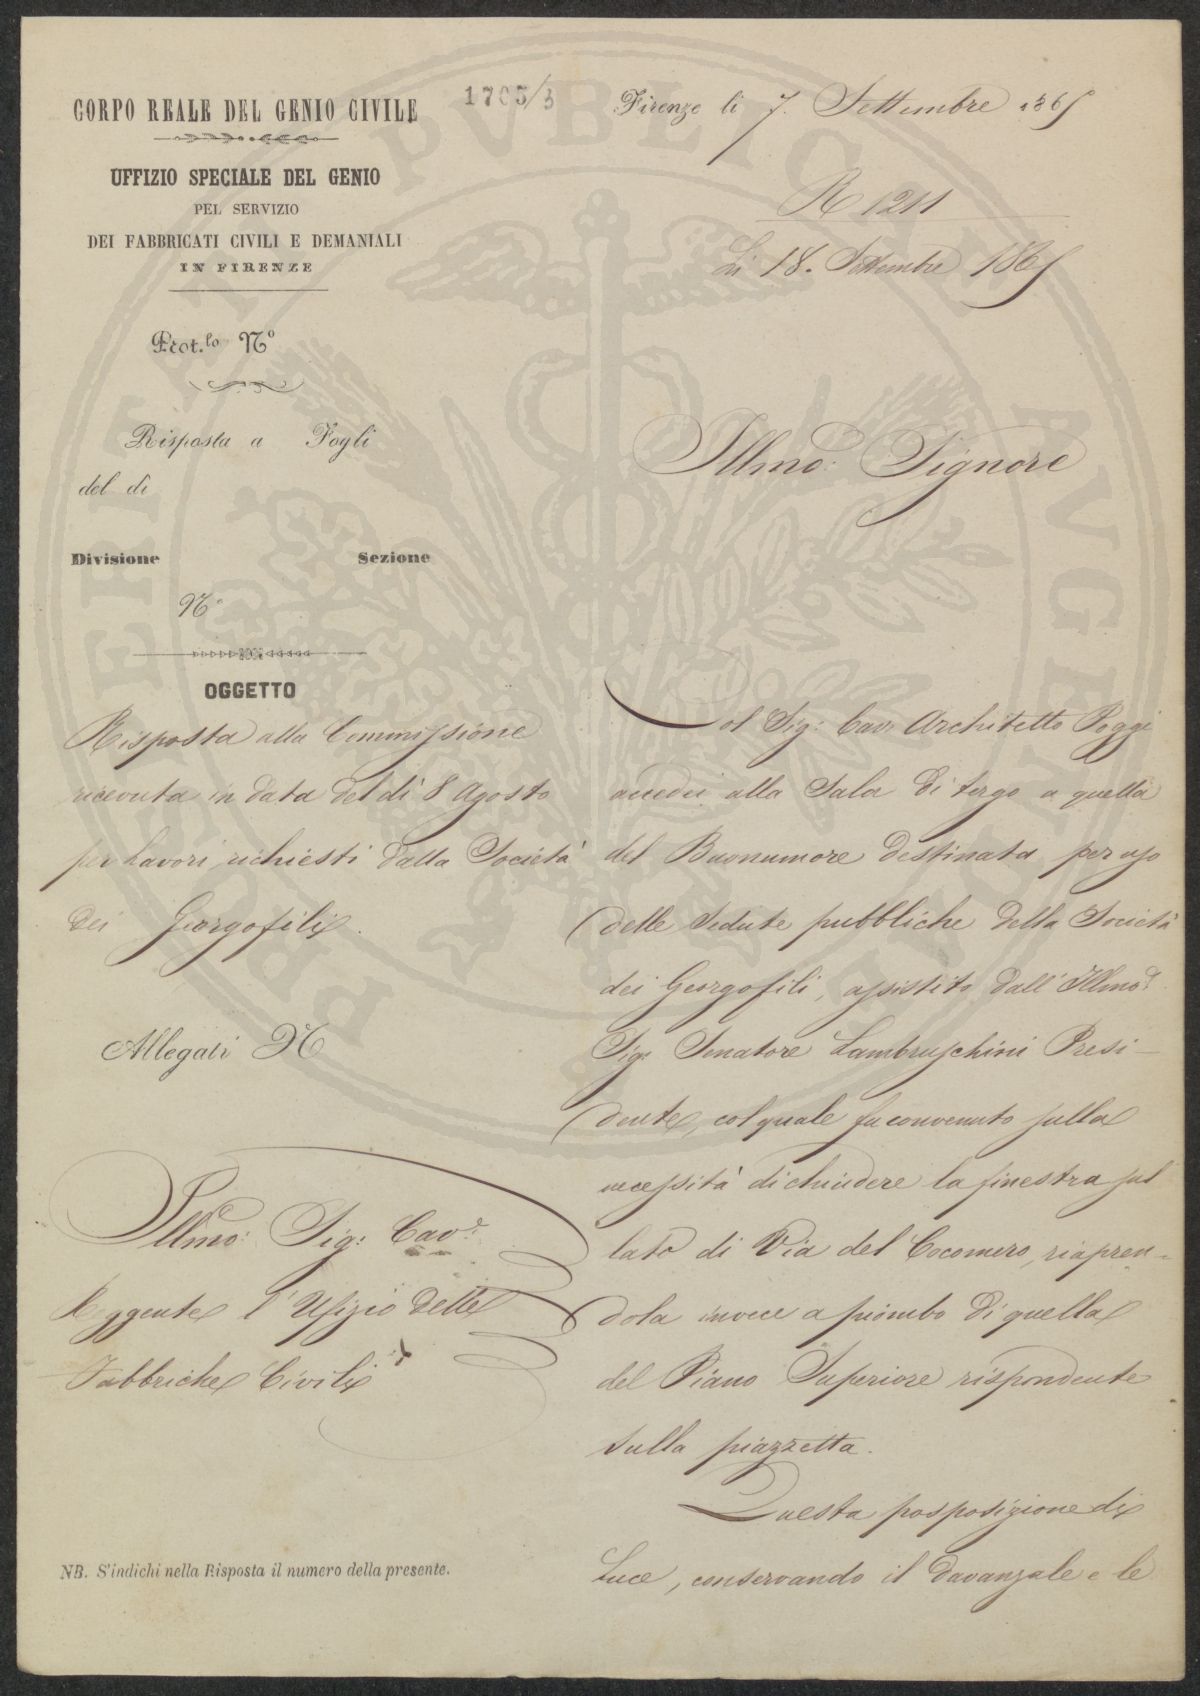 CORPO REALE DEL GENIO CIVILE
UFFIZIO SPECIALE DEL GENIO
PEL SERVIZIO
DEI FABBRICATI CIVILI E DEMANIALI
IN FIRENZE
Prot.lo No
Risposta a Fogli
del dì
Divisione Sezione
No
OGGETTO
Risposta alla Commissione
ricevuta in data del dì 8 Agosto
per Lavori richiesti dalla Società
dei Georgofili.
Allegati No
Illmo: Sig: Cav.e
Reggente l'Ufizio delle
Fabbriche Civili
NB. S'indichi nella Risposta il numero della presente.
1705/3
Firenze li 7. Settembre 1865
R 1211
Li 18. Settembre 1865
Illmo: Signore
Col Sig: Cav: Architetto Poggi
accedei alla Sala di tergo a quella
del Buonumore destinata per uso
delle Sedute pubbliche della Società
dei Georgofili, assistito dall'Illmo:
Sig: Senatore Lambruschini Presi-
dente, col quale fu convenuto sulla
necessità di chiudere la finestra sul
lato di Via del Cocomero, riapren-
dola invece a piombo di quella
del Piano Superiore rispondente
sulla piazzetta.
Questa posposizione di
Luce, conservando il davanzale e le
PUBLICAE
AUGENDAE
PROSPERITATI